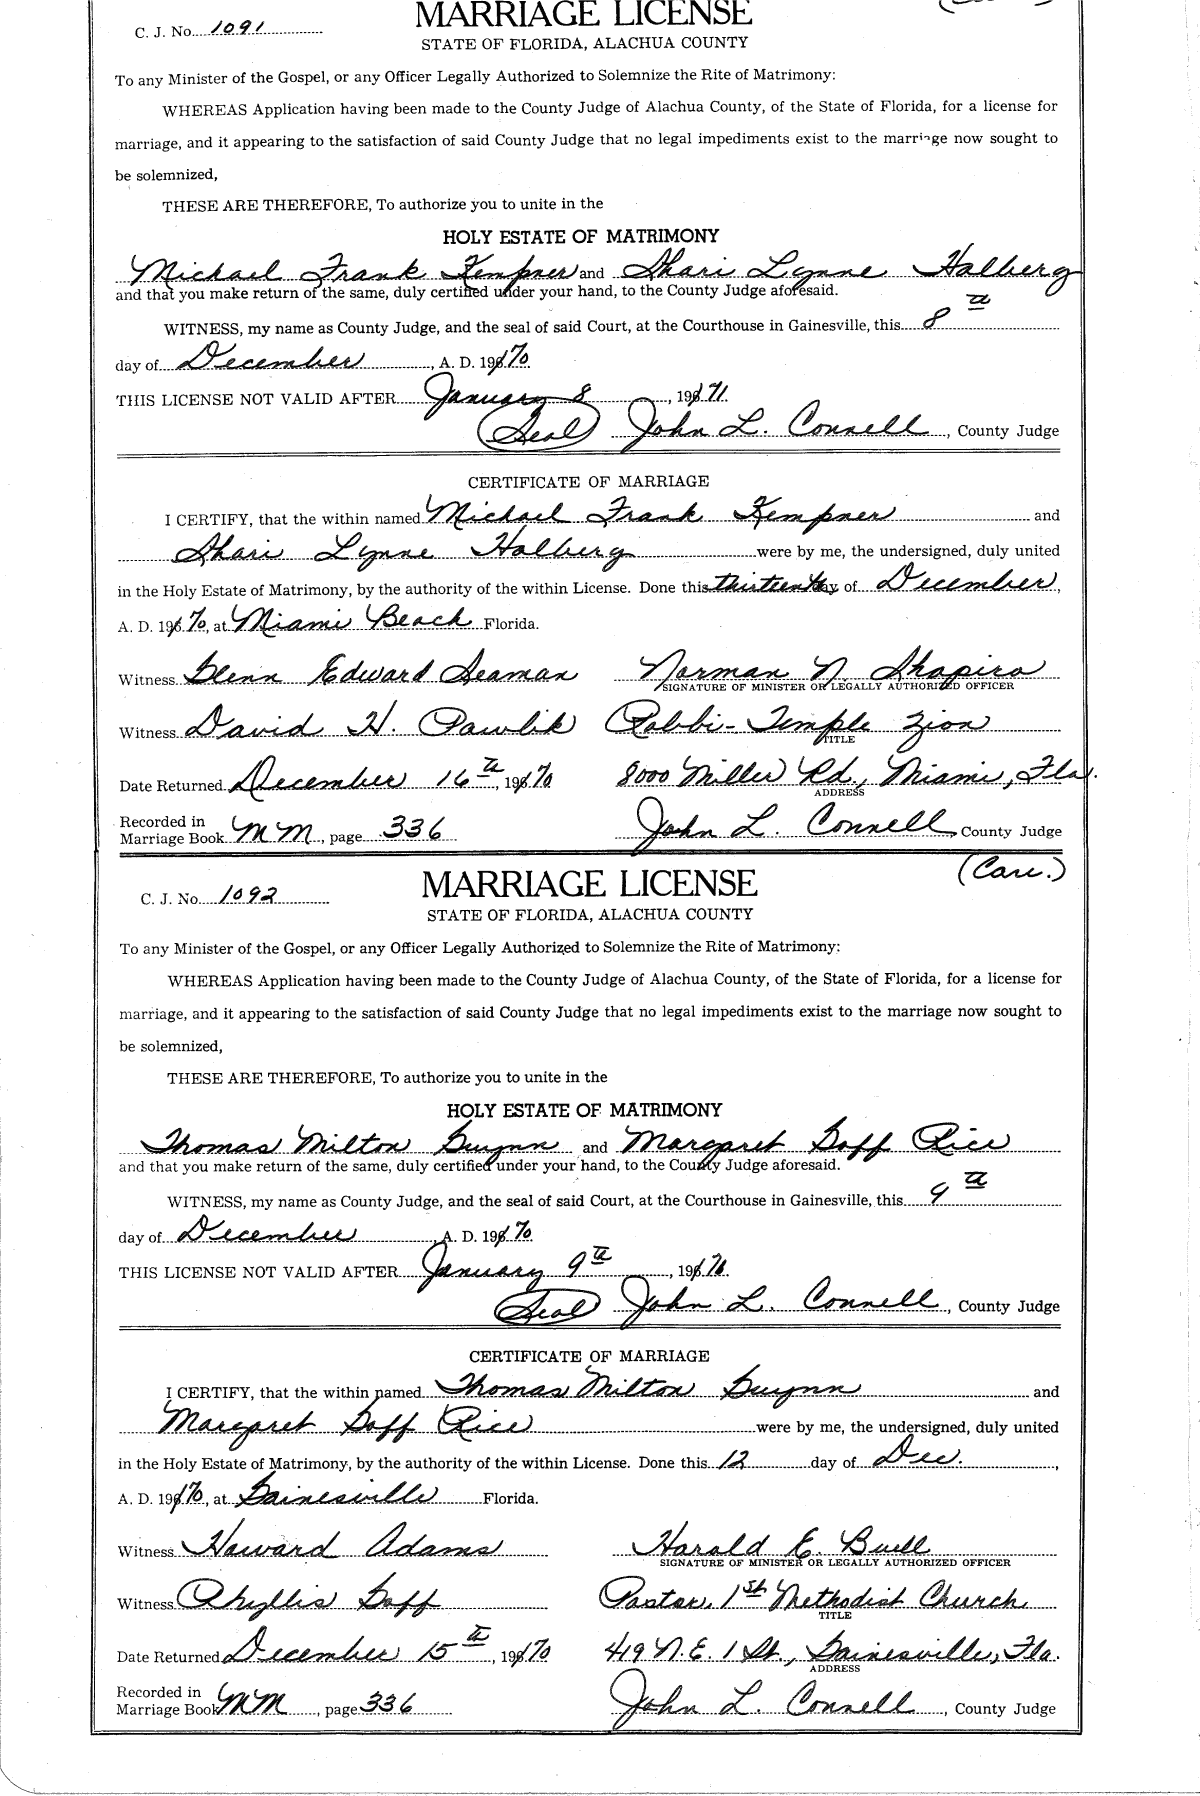 C. J. No. 1091
MARRIAGE LICENSE
STATE OF FLORIDA, ALACHUA COUNTY
To any Minister of the Gospel, or any Officer Legally Authorized to Solemnize the Rite of Matrimony:
WHEREAS Application having been made to the County Judge of Alachua County, of the State of Florida, for a license for
marriage, and it appearing to the satisfaction of said County Judge that no legal impediments exist to the marriage now sought to
be solemnized,
THESE ARE THEREFORE, To authorize you to unite in the
HOLY ESTATE OF MATRIMONY
Michael Frank Kempner and Shari Lynne Halberg
and that you make return of the same, duly certified under your hand, to the County Judge aforesaid.
WITNESS, my name as County Judge, and the seal of said Court, at the Courthouse in Gainesville, this 8th
day of December, A. D. 1970
THIS LICENSE NOT VALID AFTER January 8, 1971
(Seal) John L. Connell, County Judge
CERTIFICATE OF MARRIAGE
I CERTIFY, that the within named Michael Frank Kempner and
Shari Lynne Halberg were by me, the undersigned, duly united
in the Holy Estate of Matrimony, by the authority of the within License. Done this thirteenth day of December,
A. D. 1970, at Miami Beach Florida.
Witness Glenn Edward Seaman Norman N. Shapiro
SIGNATURE OF MINISTER OR LEGALLY AUTHORIZED OFFICER
Witness David H. Pawlik Rabbi - Temple Zion
TITLE
Date Returned December 16th, 1970 8000 Miller Rd., Miami, Fla.
ADDRESS
Recorded in
Marriage Book MM, page 336 John L. Connell County Judge
(Cau.)
C. J. No. 1092
MARRIAGE LICENSE
STATE OF FLORIDA, ALACHUA COUNTY
To any Minister of the Gospel, or any Officer Legally Authorized to Solemnize the Rite of Matrimony:
WHEREAS Application having been made to the County Judge of Alachua County, of the State of Florida, for a license for
marriage, and it appearing to the satisfaction of said County Judge that no legal impediments exist to the marriage now sought to
be solemnized,
THESE ARE THEREFORE, To authorize you to unite in the
HOLY ESTATE OF MATRIMONY
Thomas Milton Gwynn and Margaret Goff Rice
and that you make return of the same, duly certified under your hand, to the County Judge aforesaid.
WITNESS, my name as County Judge, and the seal of said Court, at the Courthouse in Gainesville, this 9th
day of December, A. D. 1970
THIS LICENSE NOT VALID AFTER January 9th, 197
(Seal) John L. Connell, County Judge
CERTIFICATE OF MARRIAGE
I CERTIFY, that the within named Thomas Milton Gwynn and
Margaret Goff Rice were by me, the undersigned, duly united
in the Holy Estate of Matrimony, by the authority of the within License. Done this 12 day of Dec.,
A. D. 1970, at Gainesville Florida.
Witness Howard Adams Harald E. Buell
SIGNATURE OF MINISTER OR LEGALLY AUTHORIZED OFFICER
Witness Phyllis Goff Pastor, 1st Methodist Church
TITLE
Date Returned December 15th, 1970 419 N.E. 1 St., Gainesville, Fla.
ADDRESS
Recorded in
Marriage Book MM, page 336 John L. Connell, County Judge